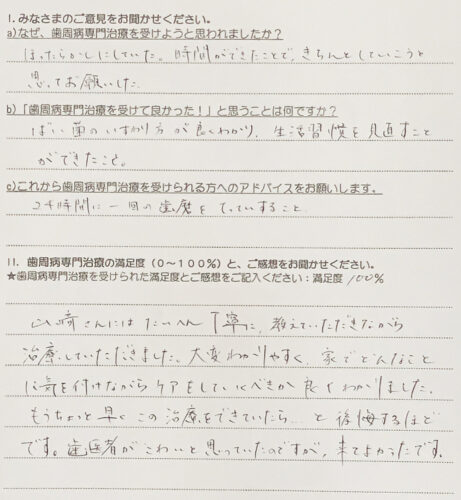 I. みなさまのご意見をお聞かせください。
a)なぜ、歯周病専門治療を受けようと思われましたか？
ほったらかしにしていた。時間ができたことで、きちんとしていこうと
思ってお願いした。
b)「歯周病専門治療を受けて良かった！」と思うことは何ですか？
ばい菌のいすわり方が良くわかり、生活習慣を見直すこと
ができたこと。
c)これから歯周病専門治療を受けられる方へのアドバイスをお願いします。
24時間に一回の歯磨きをていていすること
II. 歯周病専門治療の満足度（0～100%）と、ご感想をお聞かせください。
★歯周病専門治療を受けられた満足度とご感想をご記入ください：満足度 100%
山﨑さんにはたいへん丁寧に、教えていただきながら
治療していただきました。大変わかりやすく、家でどんなこと
に気を付けながらケアをしていくべきか良くわかりました。
もうちょっと早くこの治療をできていたら...と後悔するほど
です。歯医者がこわいと思っていたのですが、来てよかったです。